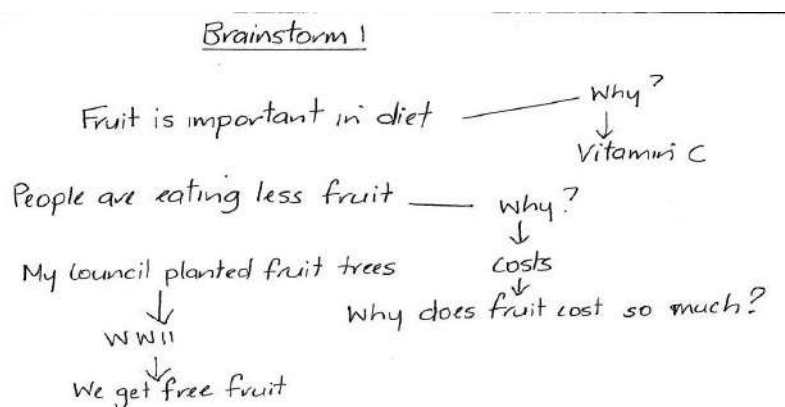 Brainstorm 1
Fruit is important in diet
Why?
Vitamin C
People are eating less fruit
Why?
costs
Why does fruit cost so much?
My Council planted fruit trees
WWII
We get free fruit